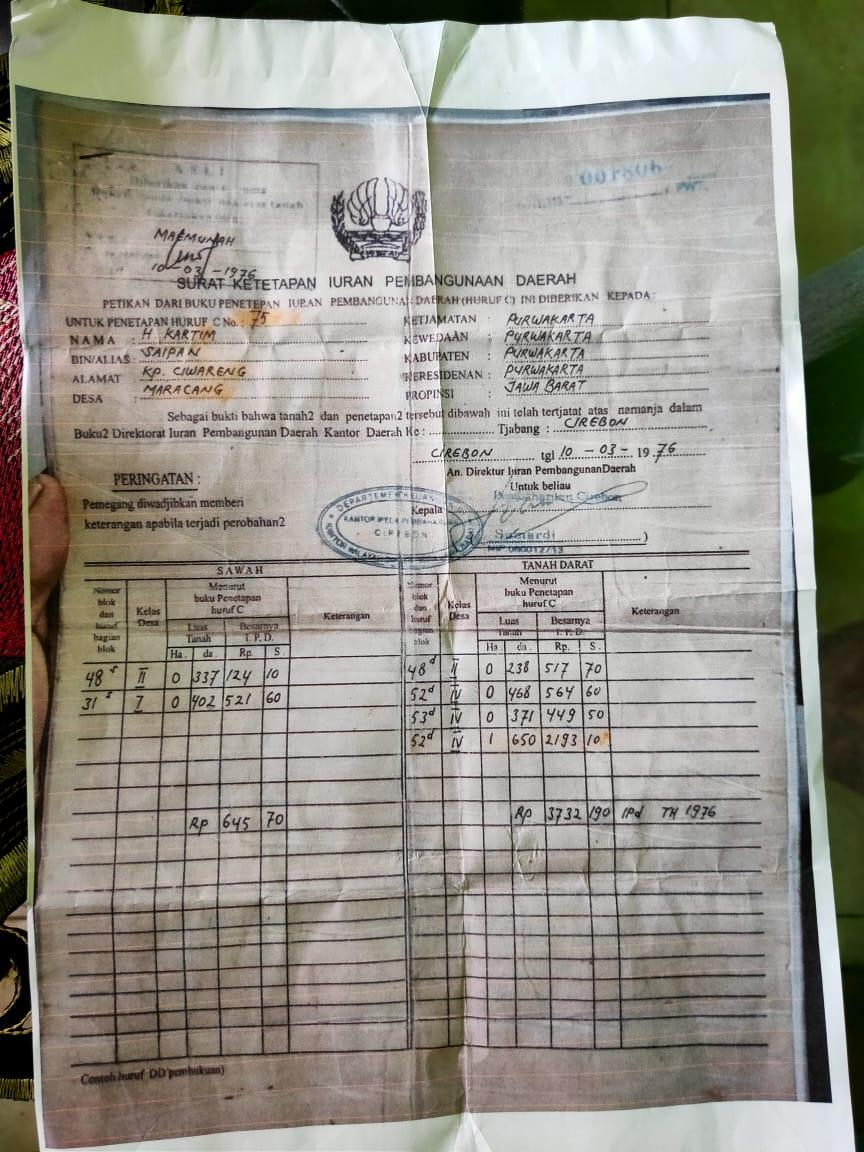 ASLI
MAEMUNAH
10-03-1976
001804
PWT.
SURAT KETETAPAN IURAN PEMBANGUNAAN DAERAH
PETIKAN DARI BUKU PENETEPAN IURAN PEMBANGUNAN DAERAH (HURUF C) INI DIBERIKAN KEPADA :
UNTUK PENETAPAN HURUF C No. : 75
NAMA : H. KARTIM
BIN/ALIAS : SAIPAN
ALAMAT : KP. CIWARENG
DESA : MARACANG
KETJAMATAN : PURWAKARTA
KEWEDAAN : PURWAKARTA
KABUPATEN : PURWAKARTA
KERESIDENAN : PURWAKARTA
PROPINSI : JAWA BARAT
Sebagai bukti bahwa tanah2 dan penetapan2 tersebut dibawah ini telah tertjatat atas namanja dalam
Buku2 Direktorat Iuran Pembangunan Daerah Kantor Daerah Ke : Tjabang : CIREBON
CIREBON tgl 10 - 03 - 1976
An. Direktur Iuran PembangunanDaerah
Untuk beliau
Cirebon
Kepala
Sumardi )
NIP.
DEPARTEMEN KEUANGAN
CIREBON
KANTOR WILAYAH
PERINGATAN :
Pemegang diwadjibkan memberi
keterangan apabila terjadi perobahan2
SAWAH
Nomor blok dan huruf bagian blok
Kelas Desa
Menurut buku Penetapan huruf C
Luas Tanah
Besarnya I. P. D.
Keterangan
Ha. da. Rp. S.
48 s II 0 337 124 10
31 s I 0 402 521 60
Rp 645 70
TANAH DARAT
Nomor blok dan huruf bagian blok
Kelas Desa
Menurut buku Penetapan huruf C
Luas Tanah
Besarnya I. P. D.
Keterangan
Ha. da. Rp. S.
48 d II 0 238 517 70
52 d IV 0 468 564 60
53 d IV 0 371 449 50
52 d IV 1 650 2193 10
Rp 3732 190 IPd TH 1976
Contoh huruf DD pembukuan)